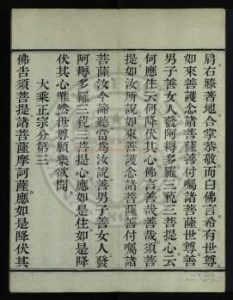 肩右膝著地合掌恭敬而白佛言希有世尊
如來善護念諸菩薩善付囑諸菩薩世尊善
男子善女人發阿耨多羅三藐三菩提心云
何應住云何降伏其心佛言善哉善哉須菩
提如汝所說如來善護念諸菩薩善付囑諸
菩薩汝今諦聽當為汝說善男子善女人發
阿耨多羅三藐三菩提心應如是住如是降
伏其心唯然世尊願樂欲聞
大乘正宗分第三
佛告須菩提諸菩薩摩訶薩應如是降伏其